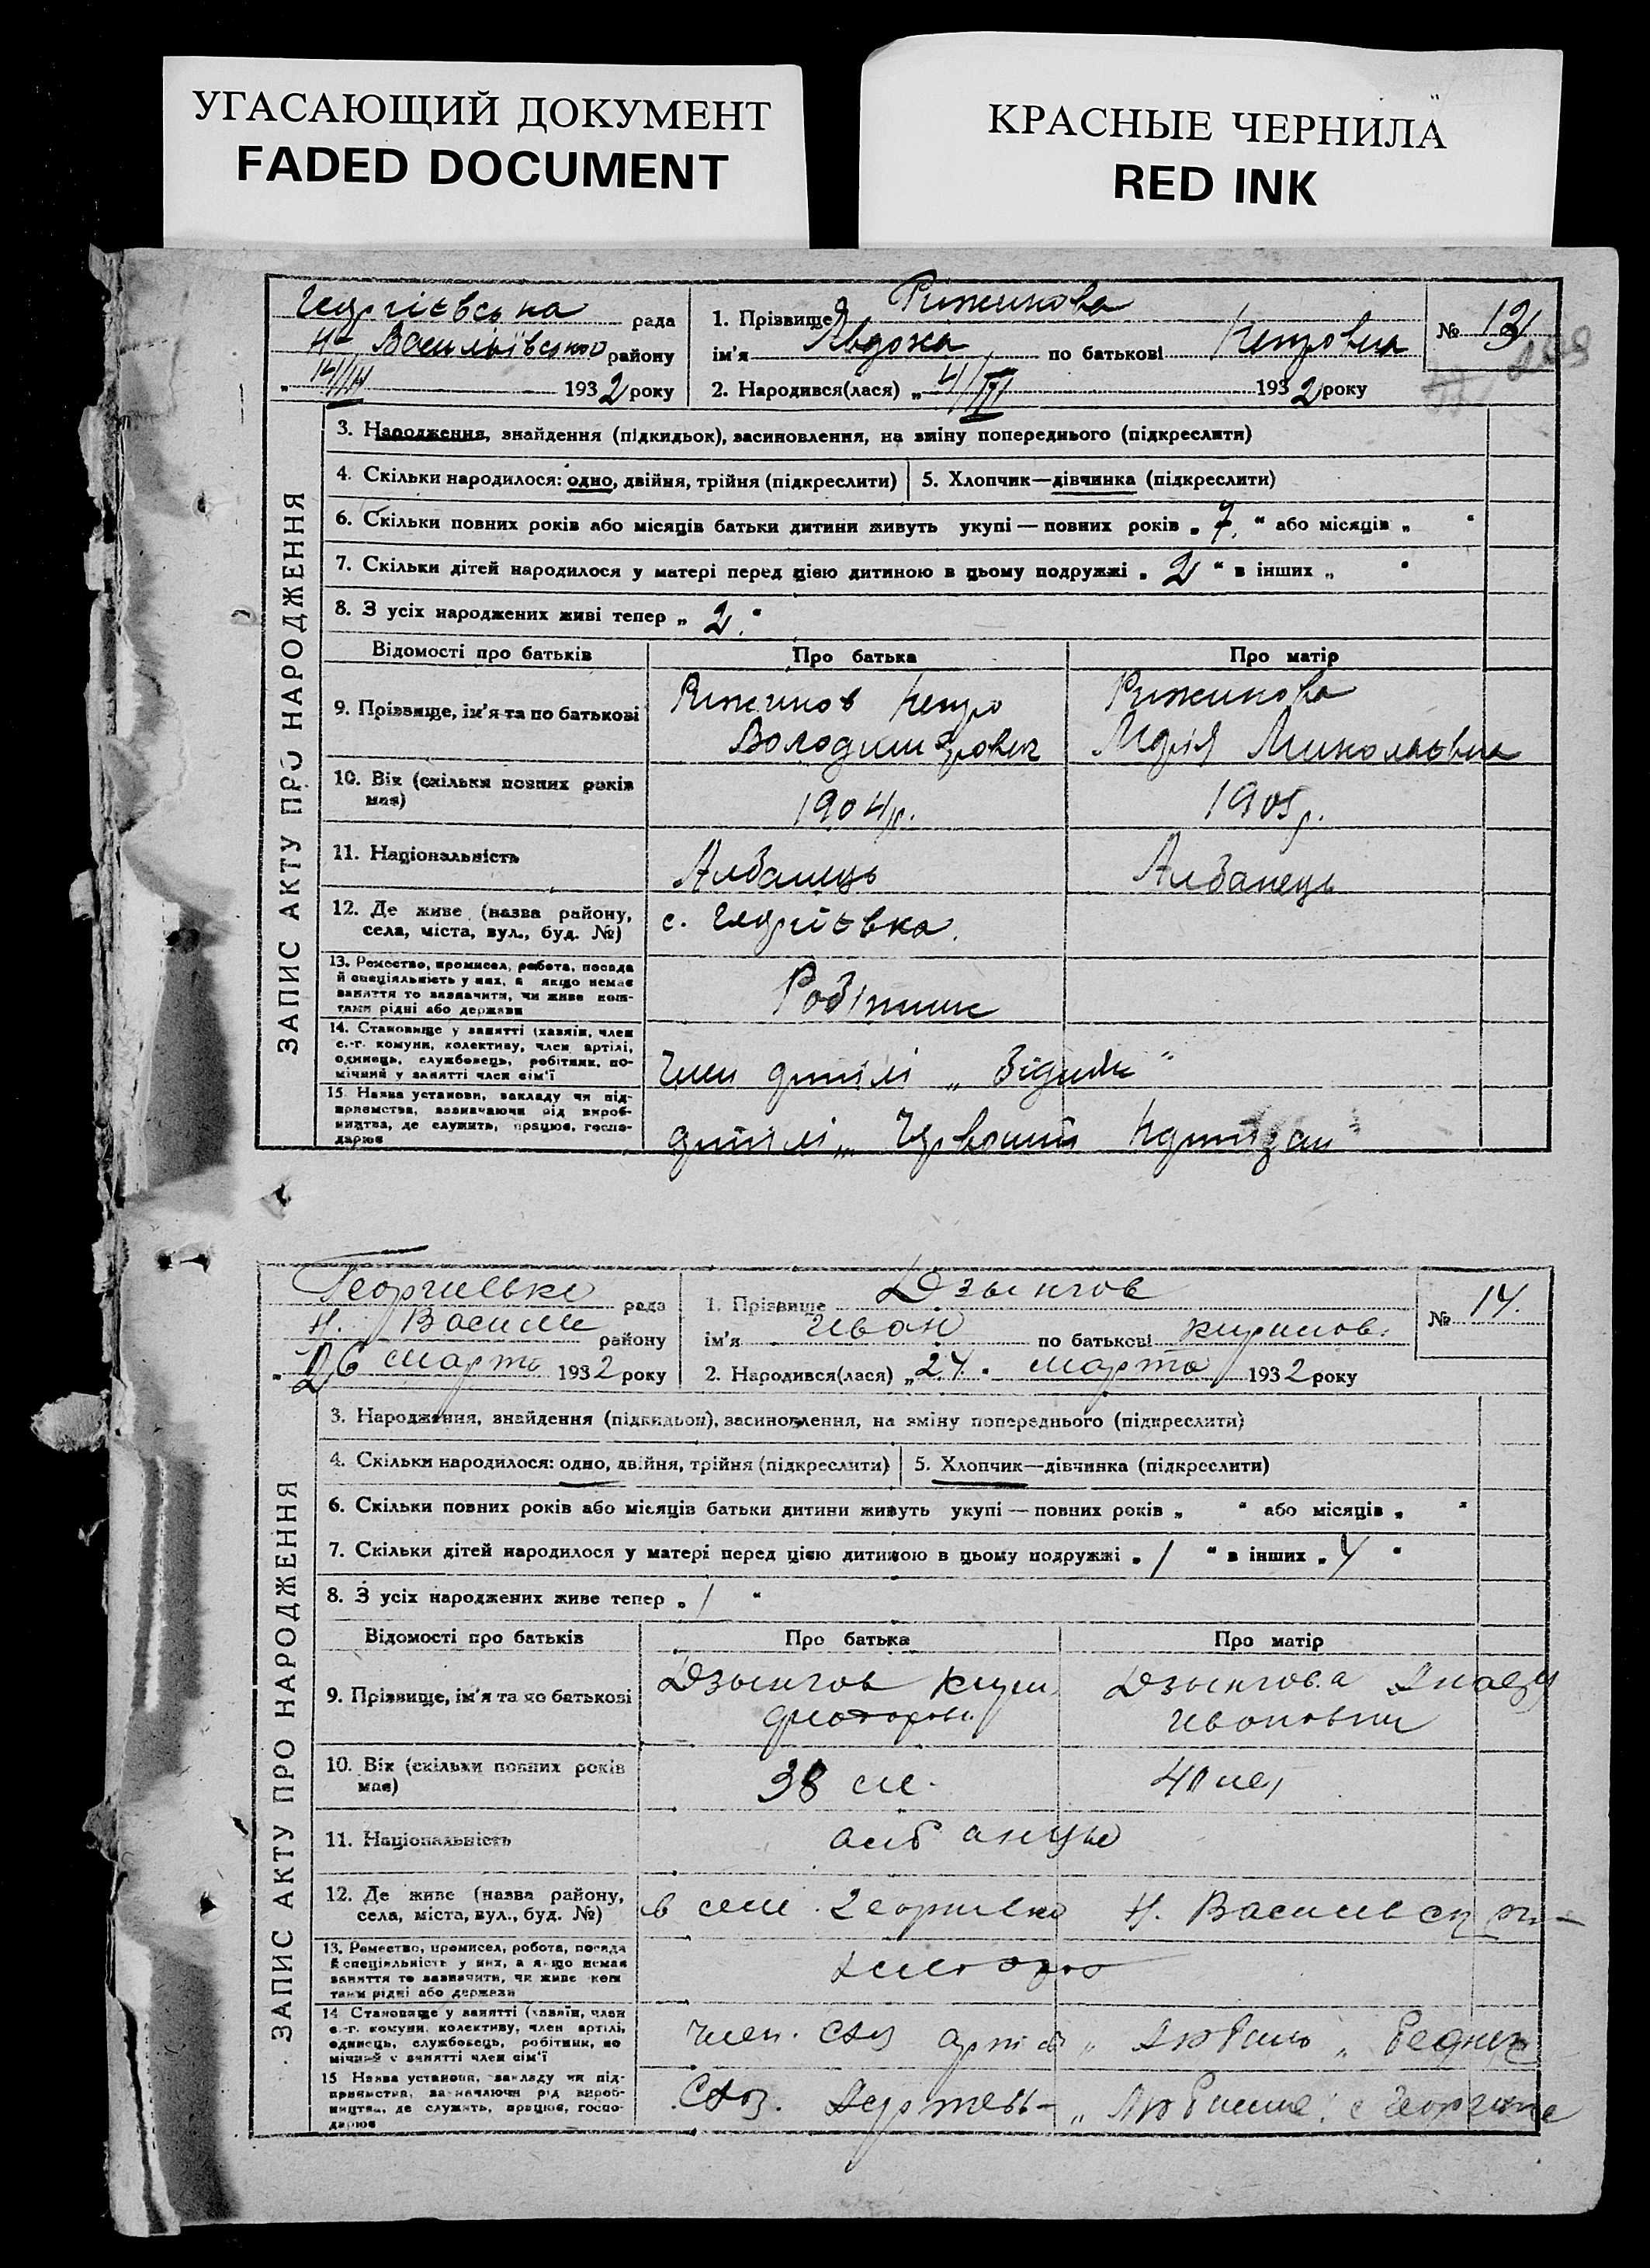 УГАСАЮЩИЙ ДОКУМЕНТ
FADED DOCUMENT
КРАСНЫЕ ЧЕРНИЛА
RED INK
ЗАПИС АКТУ ПРО НАРОДЖЕННЯ
рада
Н- Васильівського району
193 2 року
1. Прізвище Рижикова
ім'я Явдоха по батькові Петровна
2. Народився(лася) „ 4/III 193 2 року
№ 13
3. Народження, знайдення (підкидьок), засиновлення, на зміну попереднього (підкреслити)
4. Скільки народилося: одно, двійня, трійня (підкреслити)
5. Хлопчик—дівчинка (підкреслити)
6. Скільки повних років або місяців батьки дитини живуть укупі — повних років „ 7. “ або місяців „ “
7. Скільки дітей народилося у матері перед цією дитиною в цьому подружжі „ 2 “ в інших „ “
8. З усіх народжених живі тепер „ 2. “
Відомості про батьків
Про батька
Про матір
9. Прізвище, ім'я та по батькові
Рижиков Петро
Володимирович
Рижикова
Марія Миколаївна
10. Вік (скільки повних років
має)
1904 р.
1905 р.
11. Національність
Албанець
Албанець
12. Де живе (назва району,
села, міста, вул., буд. №)
с. Георгіевка.
13. Ремество, промисел, робота, посада
й спеціяльність у них, а якщо немає
заняття то зазначити, чи живе кош-
тами рідні або держави
Робітник
14. Становище у занятті (хазяїн, член
с.-г. комуни, колективу, член артілі,
одинець, службовець, робітник, по-
мічний у занятті член сім'ї
Член артілі „ Бідняк “
15. Назва установи, закладу чи під-
приємства, зазначаючи рід вироб-
ництва, де служить, працює, госпо-
дарює
артілі „ Червоний Партизан “
ЗАПИС АКТУ ПРО НАРОДЖЕННЯ
рада
Н. Васили району
„ 26 марта 193 2 року
1. Прізвище Дзынгов
ім'я Иван по батькові Кирилов.
2. Народився(лася) „ 24. “ марта 193 2 року
№ 14.
3. Народження, знайдення (підкидьок), засиновлення, на зміну попереднього (підкреслити)
4. Скільки народилося: одно, двійня, трійня (підкреслити)
5. Хлопчик—дівчинка (підкреслити)
6. Скільки повних років або місяців батьки дитини живуть укупі — повних років „ “ або місяців „ “
7. Скільки дітей народилося у матері перед цією дитиною в цьому подружжі „ 1 “ в інших „ 4 “
8. З усіх народжених живе тепер „ 1 “
Відомості про батьків
Про батька
Про матір
9. Прізвище, ім'я та по батькові
Дзынгов
Дзынгова
Ивановны
10. Вік (скільки повних років
має)
38
40 лет
11. Національність
албанцы
12. Де живе (назва району,
села, міста, вул., буд. №)
в селе Н.
13. Ремество, промисел, робота, посада
й спеціяльність у них, а якщо немає
заняття то зазначити, чи живе кош
тами рідні або держави
14 Становище у занятті (хазяїн, член
с.-г. комуни, колективу, член артілі,
одинець, службовець, робітник, по
мічний у занятті член сім'ї
член.
15 Назва установи, закладу чи під-
приємства, зазначаючи рід вироб-
ництва, де служить, працює, госпо-
дарює